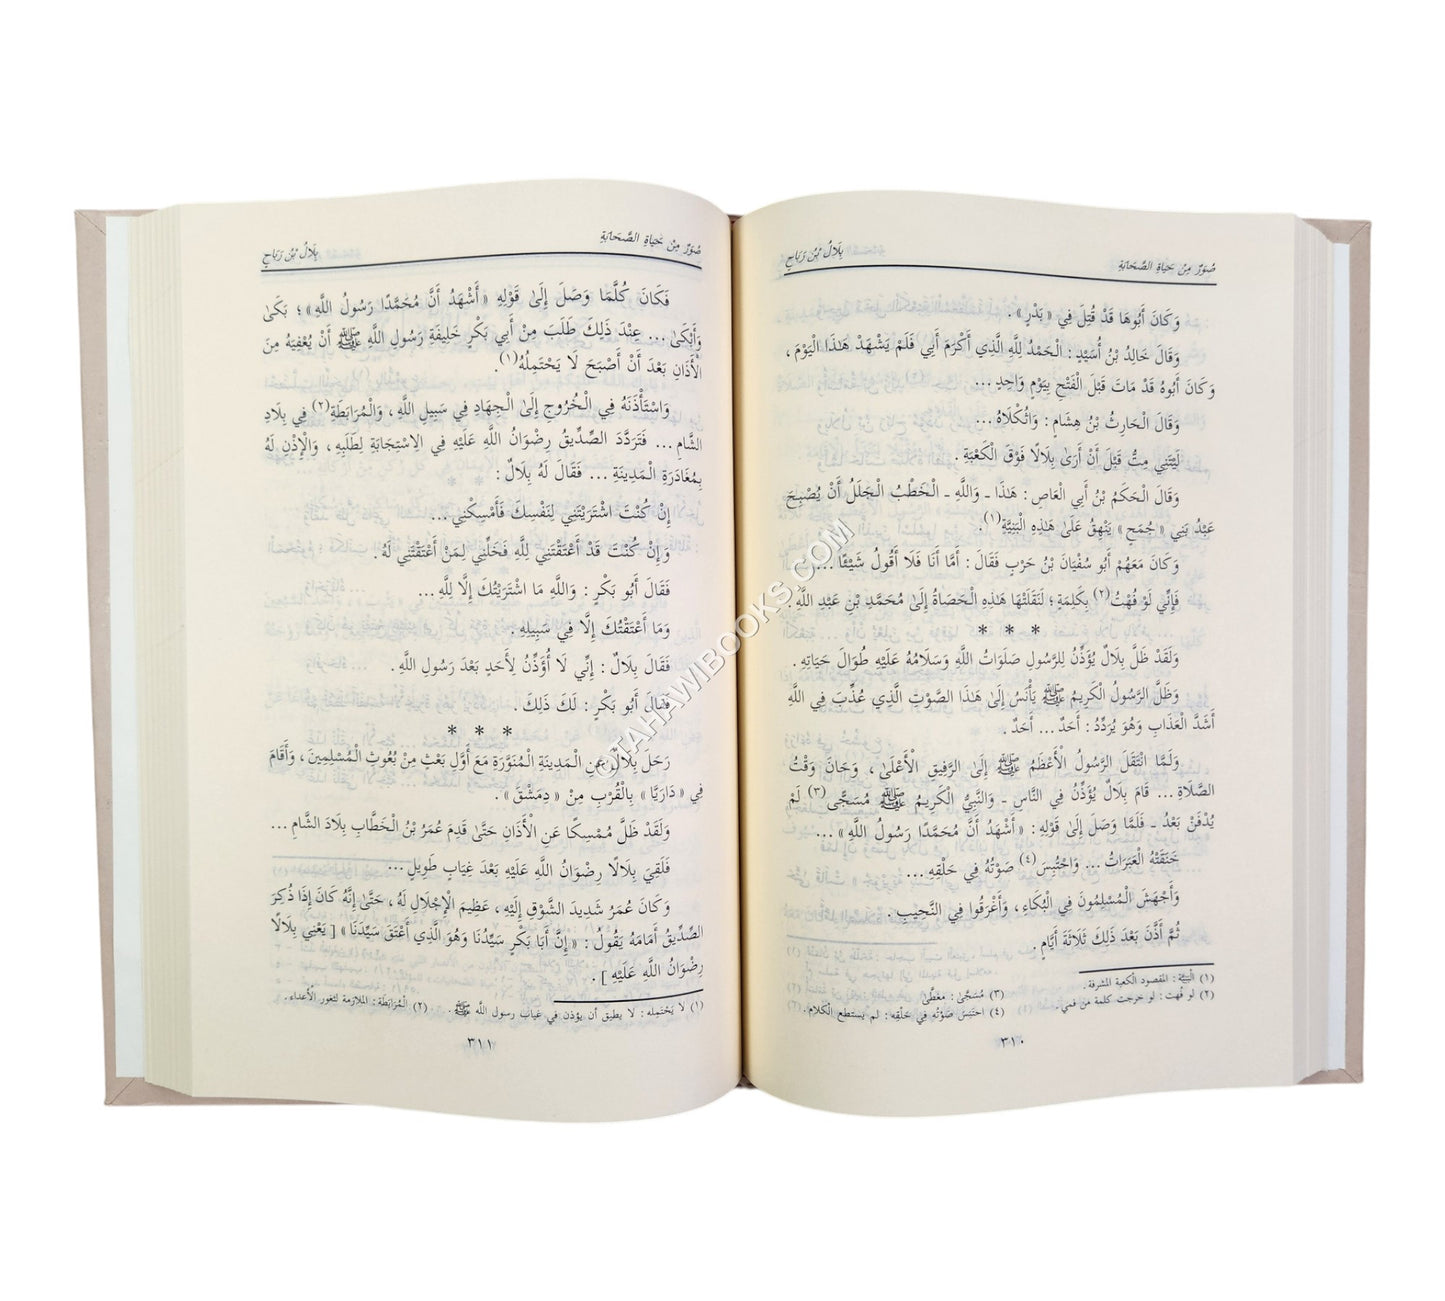 صُوَرٌ مِنْ حَيَاةِ الصَّحَابَةِ
بِلَالُ بْنُ رَبَاحٍ
وَكَانَ أَبُوهَا قَدْ قُتِلَ فِي « بَدْرٍ » .
وَقَالَ خَالِدُ بْنُ أُسَيْدٍ : الْحَمْدُ لِلَّهِ الَّذِي أَكْرَمَ أَبِي فَلَمْ يَشْهَدْ هَٰذَا الْيَوْمَ ،
وَكَانَ أَبُوهُ قَدْ مَاتَ قَبْلَ الْفَتْحِ بِيَوْمٍ وَاحِدٍ ...
وَقَالَ الْحَارِثُ بْنُ هِشَامٍ : وَاثُكْلَاهُ ...
لَيْتَنِي مِتُّ قَبْلَ أَنْ أَرَىٰ بِلَالًا فَوْقَ الْكَعْبَةِ .
وَقَالَ الْحَكَمُ بْنُ أَبِي الْعَاصِ : هَٰذَا ـ وَاللَّهِ ـ الْخَطْبُ الْجَلَلُ أَنْ يُصْبِحَ
عَبْدُ بَنِي « جُمَحٍ » يَنْهِقُ عَلَىٰ هَٰذِهِ الْبَنِيَّةِ(١).
وَكَانَ مَعَهُمْ أَبُو سُفْيَانَ بْنُ حَرْبٍ فَقَالَ : أَمَّا أَنَا فَلَا أَقُولُ شَيْئًا ...
فَإِنِّي لَوْ فُهْتُ(٢) بِكَلِمَةٍ ؛ لَنَقَلَتْهَا هَٰذِهِ الْحَصَاةُ إِلَىٰ مُحَمَّدِ بْنِ عَبْدِ اللَّهِ .
* * *
وَلَقَدْ ظَلَّ بِلَالٌ يُؤَذِّنُ لِلرَّسُولِ صَلَوَاتُ اللَّهِ وَسَلَامُهُ عَلَيْهِ طُوَالَ حَيَاتِهِ .
وَظَلَّ الرَّسُولُ الْكَرِيمُ ﷺ يَأْنَسُ إِلَىٰ هَٰذَا الصَّوْتِ الَّذِي عُذِّبَ فِي اللَّهِ
أَشَدَّ الْعَذَابِ وَهُوَ يُرَدِّدُ : أَحَدٌ ... أَحَدٌ .
وَلَمَّا انْتَقَلَ الرَّسُولُ الْأَعْظَمُ ﷺ إِلَى الرَّفِيقِ الْأَعْلَىٰ ، وَحَانَ وَقْتُ
الصَّلَاةِ ... قَامَ بِلَالٌ يُؤَذِّنُ فِي النَّاسِ ـ وَالنَّبِيُّ الْكَرِيمُ ﷺ مُسَجًّى(٣) لَمْ
يُدْفَنْ بَعْدُ ـ فَلَمَّا وَصَلَ إِلَى قَوْلِهِ : « أَشْهَدُ أَنَّ مُحَمَّدًا رَسُولُ اللَّهِ » ...
خَنَقَتْهُ الْعَبَرَاتُ ... وَاحْتَبَسَ(٤) صَوْتُهُ فِي حَلْقِهِ ...
وَأَجْهَشَ الْمُسْلِمُونَ فِي الْبُكَاءِ ، وَأَغْرَقُوا فِي النَّحِيبِ .
ثُمَّ أَذَّنَ بَعْدَ ذَلِكَ ثَلَاثَةَ أَيَّامٍ .
(١) الْبَنِيَّة : المقصود الكعبة المشرفة .
(٢) لو فُهت : لو خرجت كلمة من فمي .
(٣) مُسَجًّى : مغطًّى
(٤) احتبس صَوْتُه فِي حَلْقِه : لم يستطع الْكَلام .
٣١٠
صُوَرٌ مِنْ حَيَاةِ الصَّحَابَةِ
بِلَالُ بْنُ رَبَاحٍ
فَكَانَ كُلَّمَا وَصَلَ إِلَىٰ قَوْلِهِ « أَشْهَدُ أَنَّ مُحَمَّدًا رَسُولُ اللَّهِ » ؛ بَكَىٰ
وَأَبْكَىٰ ... عِنْدَ ذَلِكَ طَلَبَ مِنْ أَبِي بَكْرٍ خَلِيفَةِ رَسُولِ اللَّهِ ﷺ أَنْ يُعْفِيَهُ مِنَ
الْأَذَانِ بَعْدَ أَنْ أَصْبَحَ لَا يَحْتَمِلُهُ(١).
وَاسْتَأْذَنَهُ فِي الْخُرُوجِ إِلَى الْجِهَادِ فِي سَبِيلِ اللَّهِ ، وَالْمُرَابَطَةِ(٢) فِي بِلَادِ
الشَّامِ ... فَتَرَدَّدَ الصِّدِّيقُ رِضْوَانُ اللَّهِ عَلَيْهِ فِي الِاسْتِجَابَةِ لِطَلَبِهِ ، وَالْإِذْنِ لَهُ
بِمُغَادَرَةِ الْمَدِينَةِ ... فَقَالَ لَهُ بِلَالٌ :
إِنْ كُنْتَ اشْتَرَيْتَنِي لِنَفْسِكَ فَأَمْسِكْنِي ...
وَإِنْ كُنْتَ قَدْ أَعْتَقْتَنِي لِلَّهِ فَخَلِّنِي لِمَنْ أَعْتَقْتَنِي لَهُ .
فَقَالَ أَبُو بَكْرٍ : وَاللَّهِ مَا اشْتَرَيْتُكَ إِلَّا لِلَّهِ ...
وَمَا أَعْتَقْتُكَ إِلَّا فِي سَبِيلِهِ .
فَقَالَ بِلَالٌ : إِنِّي لَا أُؤَذِّنُ لِأَحَدٍ بَعْدَ رَسُولِ اللَّهِ .
فَقَالَ أَبُو بَكْرٍ : لَكَ ذَلِكَ .
* * *
رَحَلَ بِلَالٌ عَنِ الْمَدِينَةِ الْمُنَوَّرَةِ مَعَ أَوَّلِ بَعْثٍ مِنْ بُعُوثِ الْمُسْلِمِينَ ، وَأَقَامَ
فِي « دَارَيَّا » بِالْقُرْبِ مِنْ « دِمَشْقَ » .
وَلَقَدْ ظَلَّ مُمْسِكًا عَنِ الْأَذَانِ حَتَّىٰ قَدِمَ عُمَرُ بْنُ الْخَطَّابِ بِلَادَ الشَّامِ ...
فَلَقِيَ بِلَالًا رِضْوَانُ اللَّهِ عَلَيْهِ بَعْدَ غِيَابٍ طَوِيلٍ ...
وَكَانَ عُمَرُ شَدِيدَ الشَّوْقِ إِلَيْهِ ، عَظِيمَ الْإِجْلَالِ لَهُ ، حَتَّىٰ إِنَّهُ كَانَ إِذَا ذُكِرَ
الصِّدِّيقُ أَمَامَهُ يَقُولُ : « إِنَّ أَبَا بَكْرٍ سَيِّدُنَا وَهُوَ الَّذِي أَعْتَقَ سَيِّدَنَا » [ يَعْنِي بِلَالًا
رِضْوَانُ اللَّهِ عَلَيْهِ ] .
(١) لا يَحْتَمِله : لا يطيق أن يؤذن في غياب رسول اللَّه ﷺ . (٢) الْمُرَابَطَة : الملازمة لثغور الأعداء .
٣١١
©TAHAWIBOOKS.COM